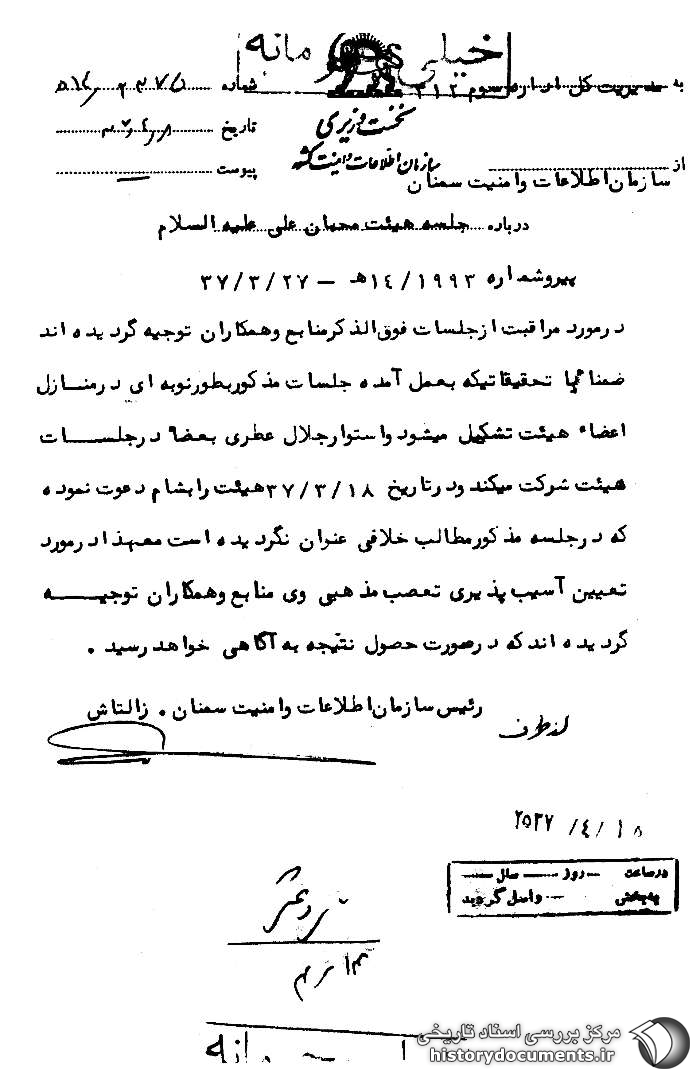 خیلی محرمانه
به مدیریت کل اداره سوم ۳۱۲
شماره
نخست وزیری
تاریخ
سازمان اطلاعات و امنیت کشور
پیوست
از سازمان اطلاعات و امنیت سمنان
درباره جلسه هیئت محبان علی علیه السلام
پیروشماره ۱۴/۱۹۹۳ه‍ – ۳۷/۳/۲۷
درمورد مراقبت ازجلسات فوق الذکرمنابع وهمکاران توجیه گردیده اند
ضمنا با تحقیقاتیکه بعمل آمده جلسات مذکوربطورنوبه ای درمنازل
اعضاء هیئت تشکیل میشود واستوارجلال عطری بعضا درجلسات
هیئت شرکت میکند ودرتاریخ ۳۷/۳/۱۸ هیئت رابشام دعوت نموده
که درجلسه مذکورمطالب خلافی عنوان نگردیده است معهذا درمورد
تعیین آسیب پذیری تعصب مذهبی وی منابع وهمکاران توجیه
گردیده اندکه درصورت حصول نتیجه به آگاهی خواهد رسید .
رئیس سازمان اطلاعات وامنیت سمنان . زالتاش
از طرف
۲۵۳۷/۴/۱۵
درساعت روز سال
به بخش واصل گردید
مرکز بررسی اسناد تاریخی
historydocuments.ir